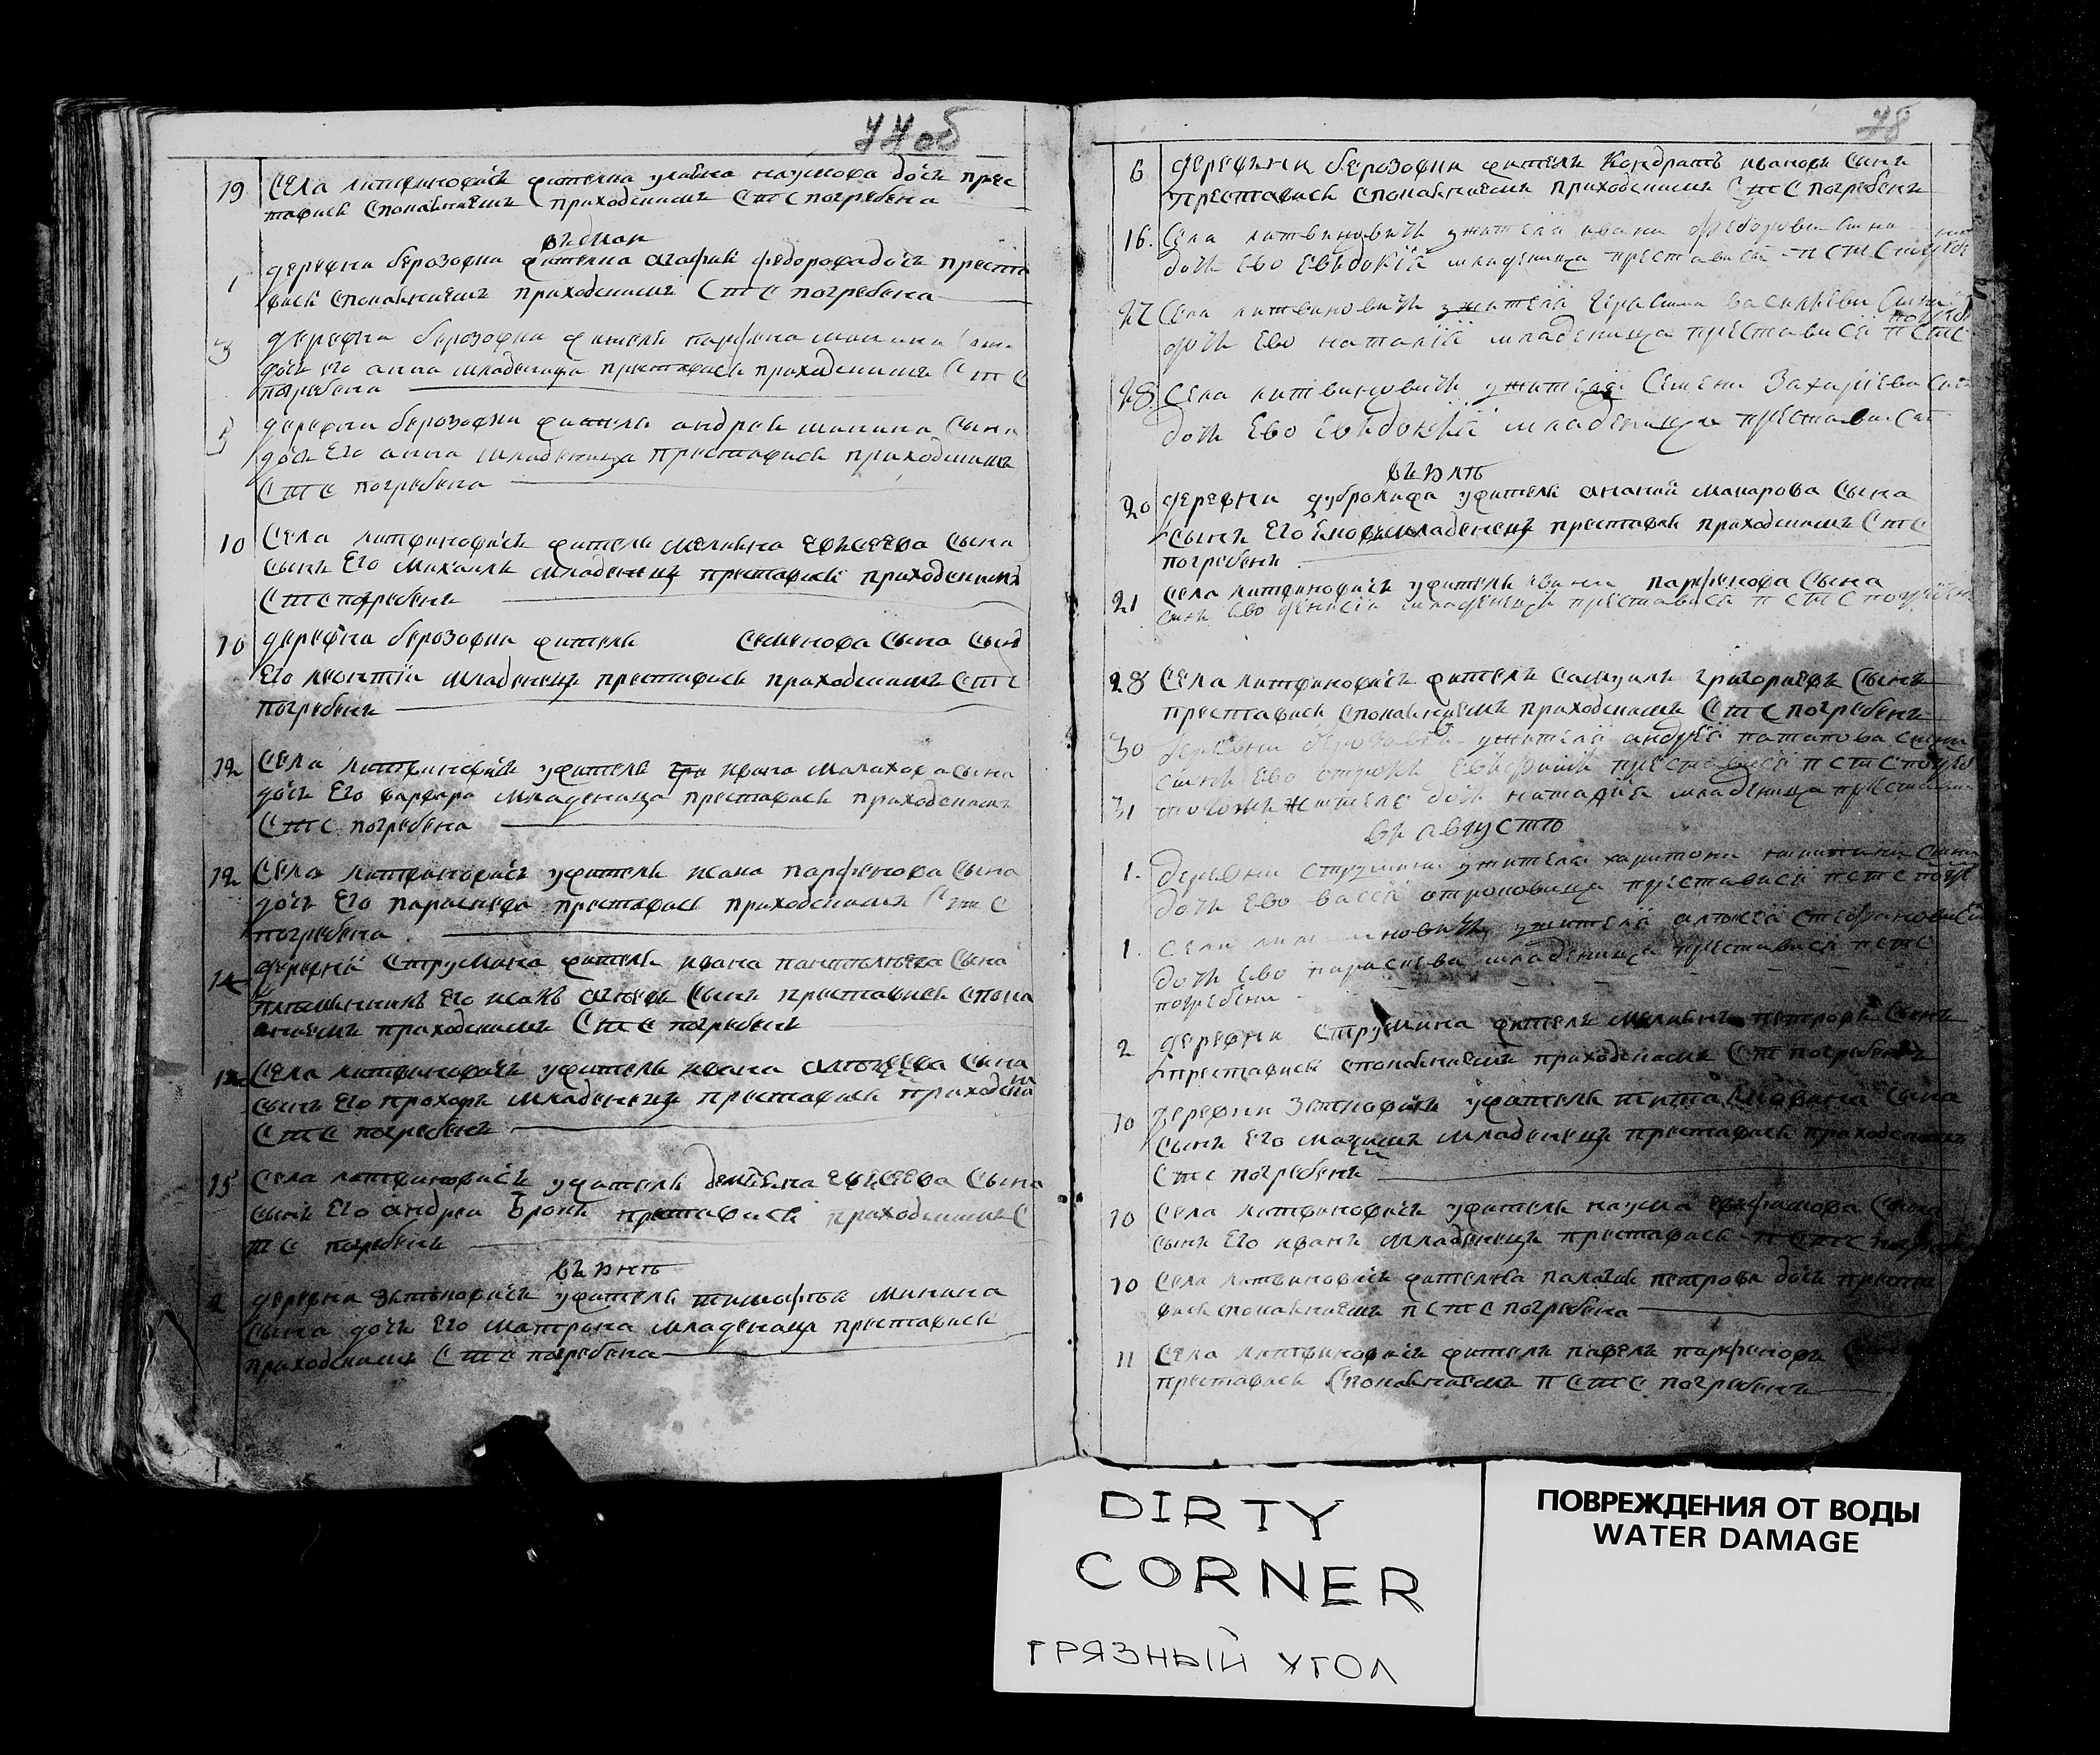 77об
19 Села литвиновичъ жителка улияна наумова дочъ прес
тавис споканиемъ приходскимъ С т С погребена
въ маи
1 деревни берозовки жителка агафия федорова дочь преста
вися споканиемъ приходскимъ С т С погребена
3 деревни берозовки жителя парфена минина сына
дочъ его анна младеница преставис приходскимъ С т С
погребена
5 деревни берозовки жителя андрея минина сына
дочъ его анна младеница преставис приходскимъ
С т С погребена
10 Села литвиновичъ жителя сына
сынъ Его михаилъ младенецъ преставис приходскимъ
С т С погребенъ
10 деревни берозовки жителя семенова сына сынъ
Его леонтіи младенецъ преставис приходскимъ С т С
погребенъ
12 Села литвиновичъ ужителя ивана малахова сына
дочъ Его варвара младеница преставис приходскимъ
С т С погребена
12 Села литвиновичъ ужителя исака парфенова сына
дочъ Его параскева преставис приходскимъ С т С
погребена
14 деревни Струмина жителя ивана сына
племынникъ Его исакъ сынъ преставис спока
аниемъ приходскимъ С т С погребенъ
Села литвиновичъ ужителя ивана сына
сынъ Его прохоръ младенецъ преставис приходским
С т С погребенъ
15 Села литвиновичъ ужителя сына
сынъ Его андреи преставис приходскимъ С
т С погребенъ
въ июнъ
2 деревна ужителя тимофея минина
сына дочъ Его матрона младеница преставис
приходскимъ С т С погребена
78
6 деревни берозовки жителъ Кондратъ ивановъ сынъ
преставис споканиемъ приходскимъ С т С погребенъ
16. Села литвиновичъ ужителя ивана федорова сына
дочъ ево Евъдокія младеница преставися п С т С
27 Села литвиновичъ ужителя герасима василиева сына
дочъ Ево наталія младеница преставися п С т С
28. Села литвиновичъ ужителя Семена Захариева
дочъ Ево Евъдокия младеница преставися
въ июлъ
20 деревни ужителя анании макарова сына
сынъ Его младенецъ преставис приходскимъ С т С
погребенъ
21 Села литвиновичъ ужителя ивана парфенова сына
сынъ ево денисіи младенецъ преставися п С т С
28 Села литвиновичъ жителъ самуилъ григориевъ сынъ
преставис споканиемъ приходскимъ С т С погребенъ
30 деревни берозовки ужителя андрея патапова сына
сынъ ево отрокъ преставися п С т С
31 тогожъ жителя дочъ наталия младеница
въ августъ
1. деревни струмини ужителя харитона сына
дочъ ево отроковица преставися п С т С
1. Села ужителя
дочъ ево параскева младеница преставися п С т С
погребена
2 деревни Струмина жителъ петровъ сынъ
преставис споканиемъ приходскимъ С т погребенъ
10 деревни ужителя сына
сынъ Его младенецъ преставис приходскимъ
С т С погребенъ
10 Села литвиновичъ ужителя наума сына
сынъ Его иванъ младенецъ преставис п С т С
10 Села литвиновичъ жителка палагия петрова дочъ преста
вис споканиемъ п С т С погребена
11 Села литвиновичъ жителъ павелъ парфеновъ
преставис споканиемъ п С т С погребенъ
DIRTY
CORNER
ГРЯЗНЫЙ УГОЛ
ПОВРЕЖДЕНИЯ ОТ ВОДЫ
WATER DAMAGE